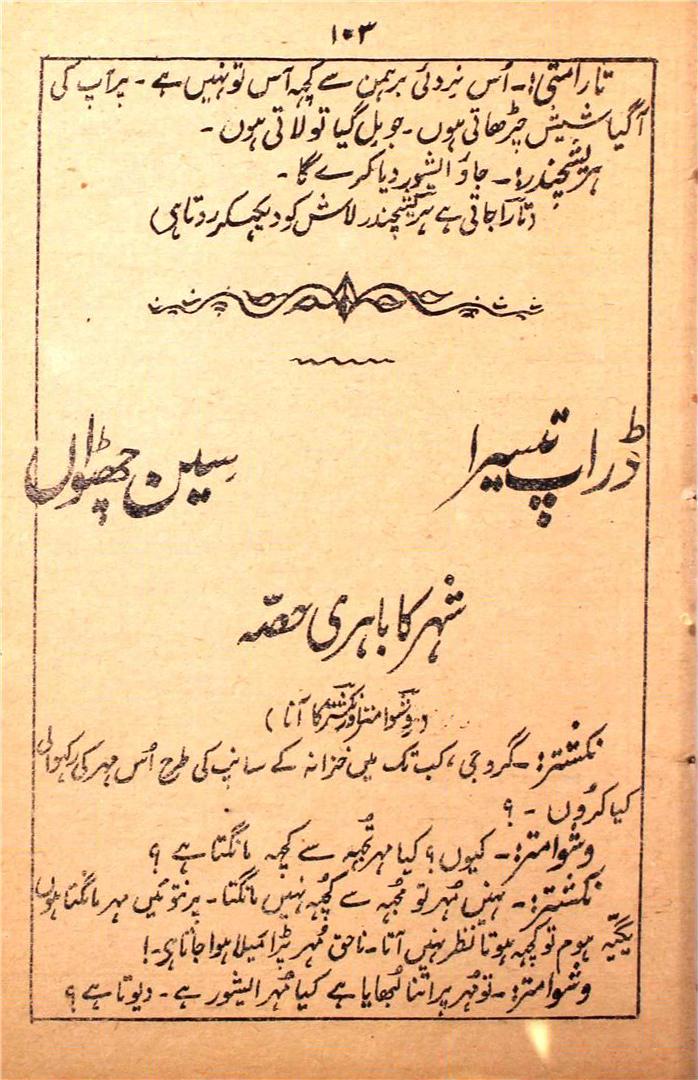 ۱۰۳
تارامتی:۔ اُس نردئی برہمن سے کچہہ آس تو نہیں ہے۔ پر آپ کی
آگیا شیش چڑھاتی ہوں۔ جو مِل گیا تو لاتی ہوں۔
ہریشچندر:۔ جاؤ ایشور دیا کرے گا۔
(تارا جاتی ہے ہریشچندر لاش کو دیکہکر روتا ہی)
ڈراپ تیسرا
سین چھٹواں
شہر کا باہری حصّہ
(وشوامتر اور نکشتر کا آنا)
نکشتر:۔ گروجی، کب تک میں خزانہ کے سانپ کی طرح اُس مہر کی رکہوالی
کیا کروں ۔ ؟
وشوامتر:۔ کیوں؟ کیا مہر تجہہ سے کچہہ مانگتا ہے ؟
نکشتر:۔ نہیں مُہر تو مُجہہ سے کُچہہ نہیں مانگتا۔ پرنتو میں مہر مانگتا ہوں
یگیّہ ہوم تو کچہہ ہوتا نظر نہیں آتا۔ ناحق مُہر پڑا مَیلا ہوا جاتا ہی۔!
وشوامتر:۔ تو مُہر پر اتنا لُبھایا ہے کیا مُہر ایشور ہے۔ دیوتا ہے ؟